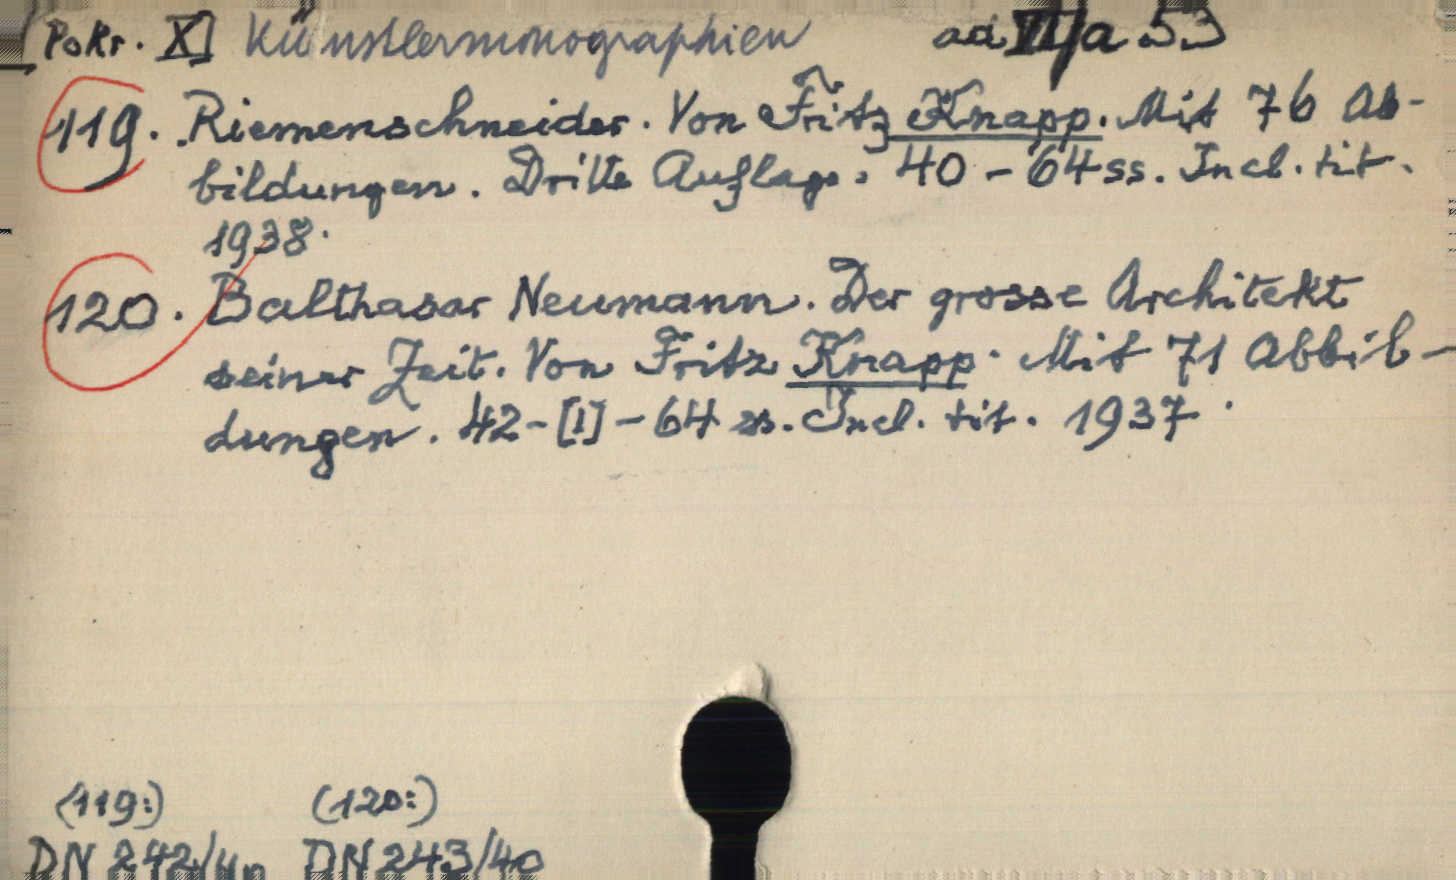 Pokr. X] Künstlermonographien ad VII/a 53
119. Riemenschneider. Von Fritz Knapp. Mit 76 Ab-
bildungen. Dritte Auflage. 40 - 64 ss. Incl. tit.
1938.
120. Balthasar Neumann. Der grosse Architekt
seiner Zeit. Von Fritz Knapp. Mit 71 Abbil-
dungen. 42-[1]-64 ss. Incl. tit. 1937.
(119:) (120:)
DN 242/40 DN 243/40